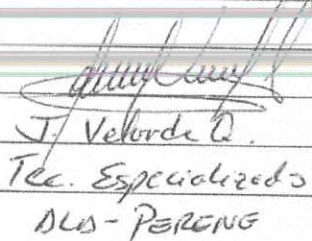 J. Velarde Q.
Tec. Especializado
ALA - PERENE